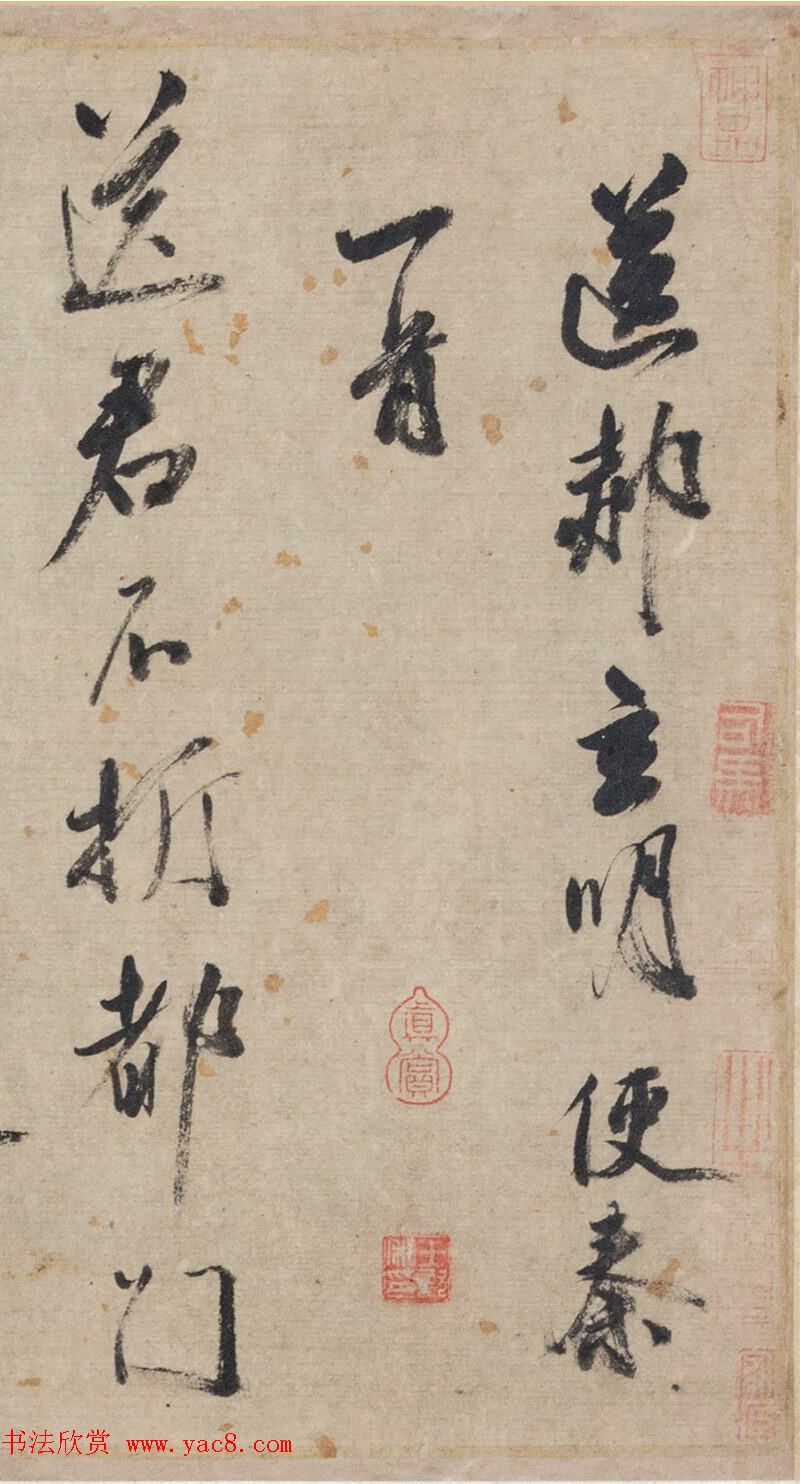 送郝玄明使秦
一首
送君不折都门
神品
真賞
书法欣赏 www.yac8.com